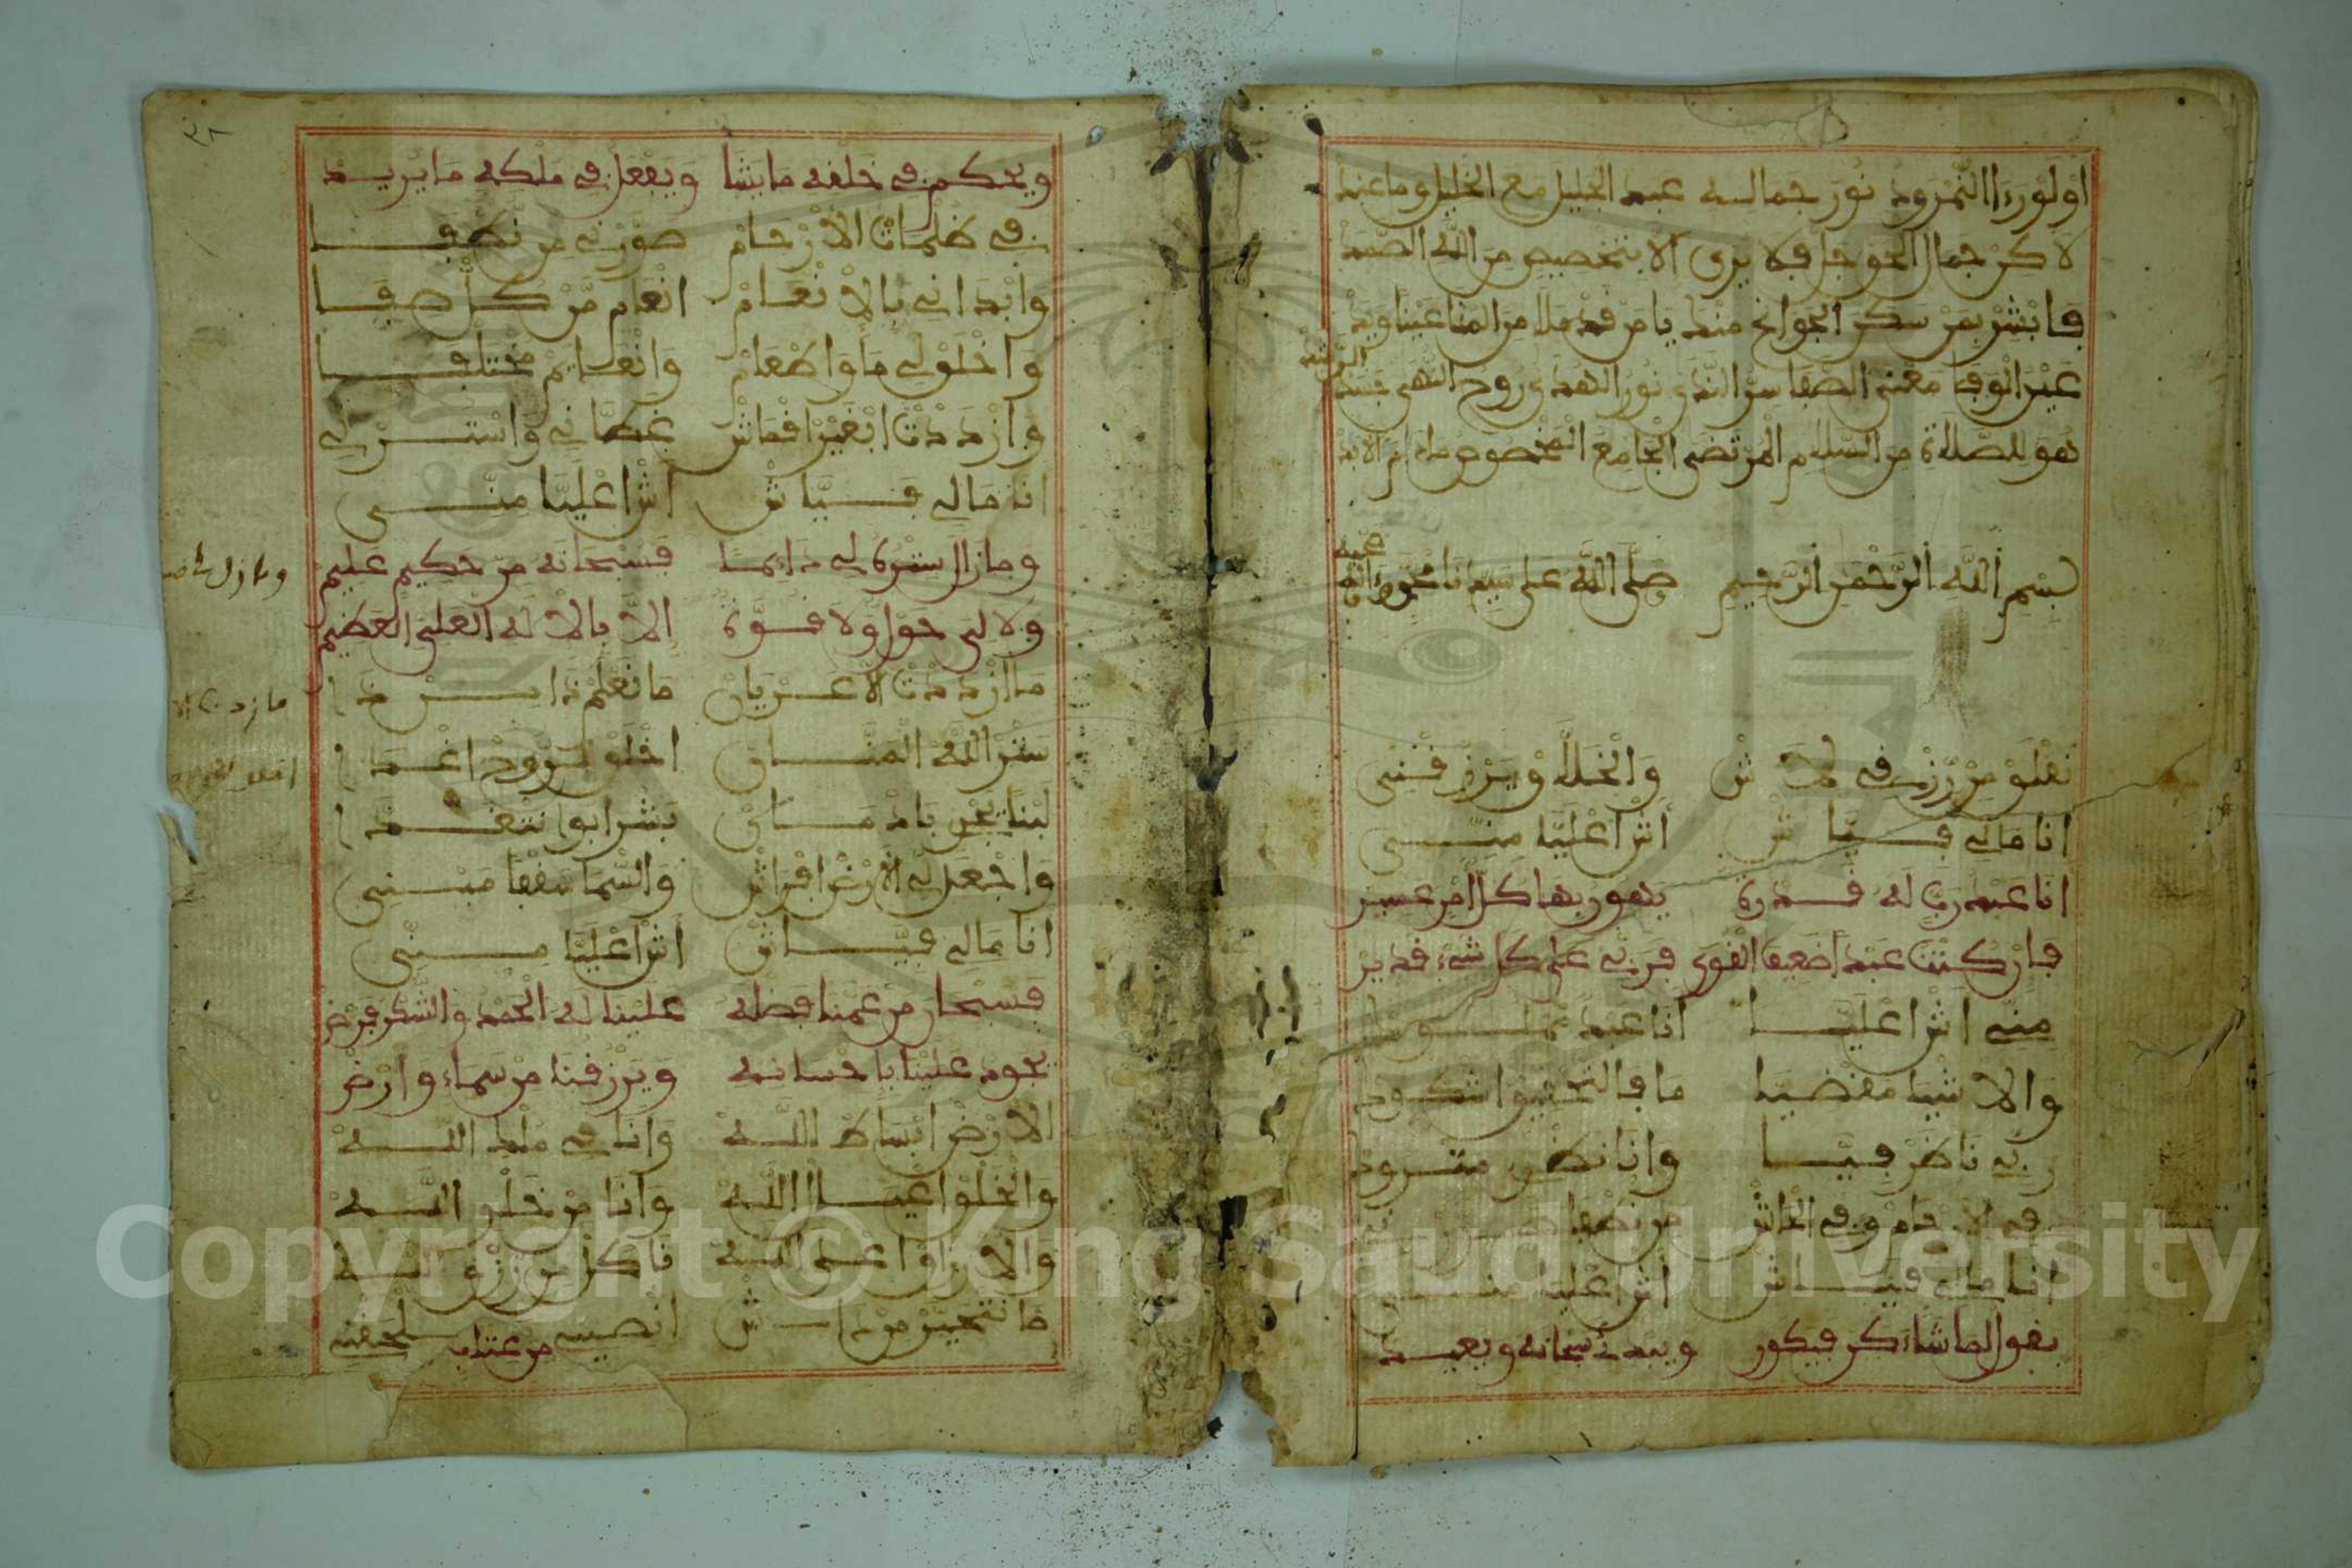 او لو رءا النمرود نور جماله عبد الجليل مع الخليل وما عند
لاكن جمال الحق جل فلا يرى الا بتخصيص من الله الصمد
فابشر بمن سكن الجوانح منك يا من قد ملا من المنا عينا ويد
عين الوفا معنى الصفا سر الندى نور الهدى روح النهى جسد
الرشد
هو للصلاة من السلام المرتضى الجامع المخصوص ما دام الابد
بسم الله الرحمن الرحيم صلى الله على سيدنا محمد وءاله
وصحبه
نقلق من رزقي لاش والخالق يرزقني
انا مالي فياش اش اعليا مني
انا عبد رب له قدرة يهون بها كل امر عسير
فان كنت عبدا ضعيف القوى فربي على كل شيء قدير
مني اش اعليا انا عبد مملوك
والاشيا مقضيا ما فالتحقيق اشكوك
ربي ناظر فيا وانا نظري متروك
في الارحام وفي الحاش من نطفا صورني
انا مالي فياش اش اعليا مني
يقول لما شاء كن فيكون ويبدئ سبحانه ويعيد
٣٢
ويحكم في خلقه ما يشا ويفعل في ملكه ما يريد
في ظلمات الارحام صورني من نطفا
وابداني بالانعام انعام من كل صفا
واخلق لي ما واطعام وانعايم مختلفا
وازددت ابغير اقماش غطاني واسترلي
انا مالي فياش اش اعليا مني
وما زال ستره لي دايما فسبحانه من حكيم عليم
ولا لي حول ولا قوة الا بالاله العلي العظيم
ما ازددت الا عريان ما نعلم ذا من ذا
ستر الله المنان اخلق لروح اغدا
لبنا يجري بادمان بشرابو نتغدا
واجعل لي الارض افراش والسما سقفا مبني
انا مالي فياش اش اعليا مني
فسبحان من عمنا فضله علينا له الحمد والشكر فرض
يجود علينا باحسانه ويرزقنا من سماء وارض
الارض ابساط الله وانا في ملك الله
والخلق اعيال الله وانا من خلق الله
والارزاق على الله ناكل من رزق الله
ما نتحير من ذاش انصيبي من عند يلحقني
وما زال
ما زددت الا
اخلق